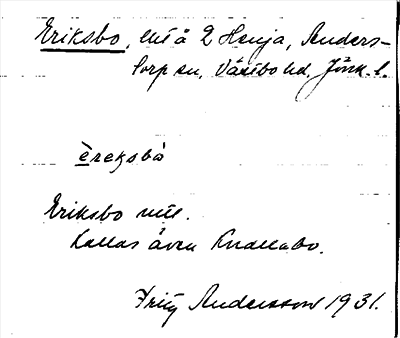 Eriksbo, lht å 2 Henja, Anders-
torp sn, Västbo hd, Jönk. l.
èreksbò
Eriksbo
Kallas även Knallabo.
Fritz Andersson 1931.